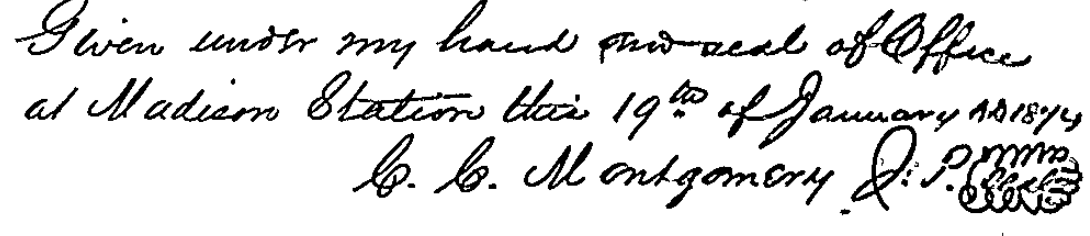 Given under my hand and seal of Office
at Madison Station this 19th of January AD 1874
C. C. Montgomery J. P.